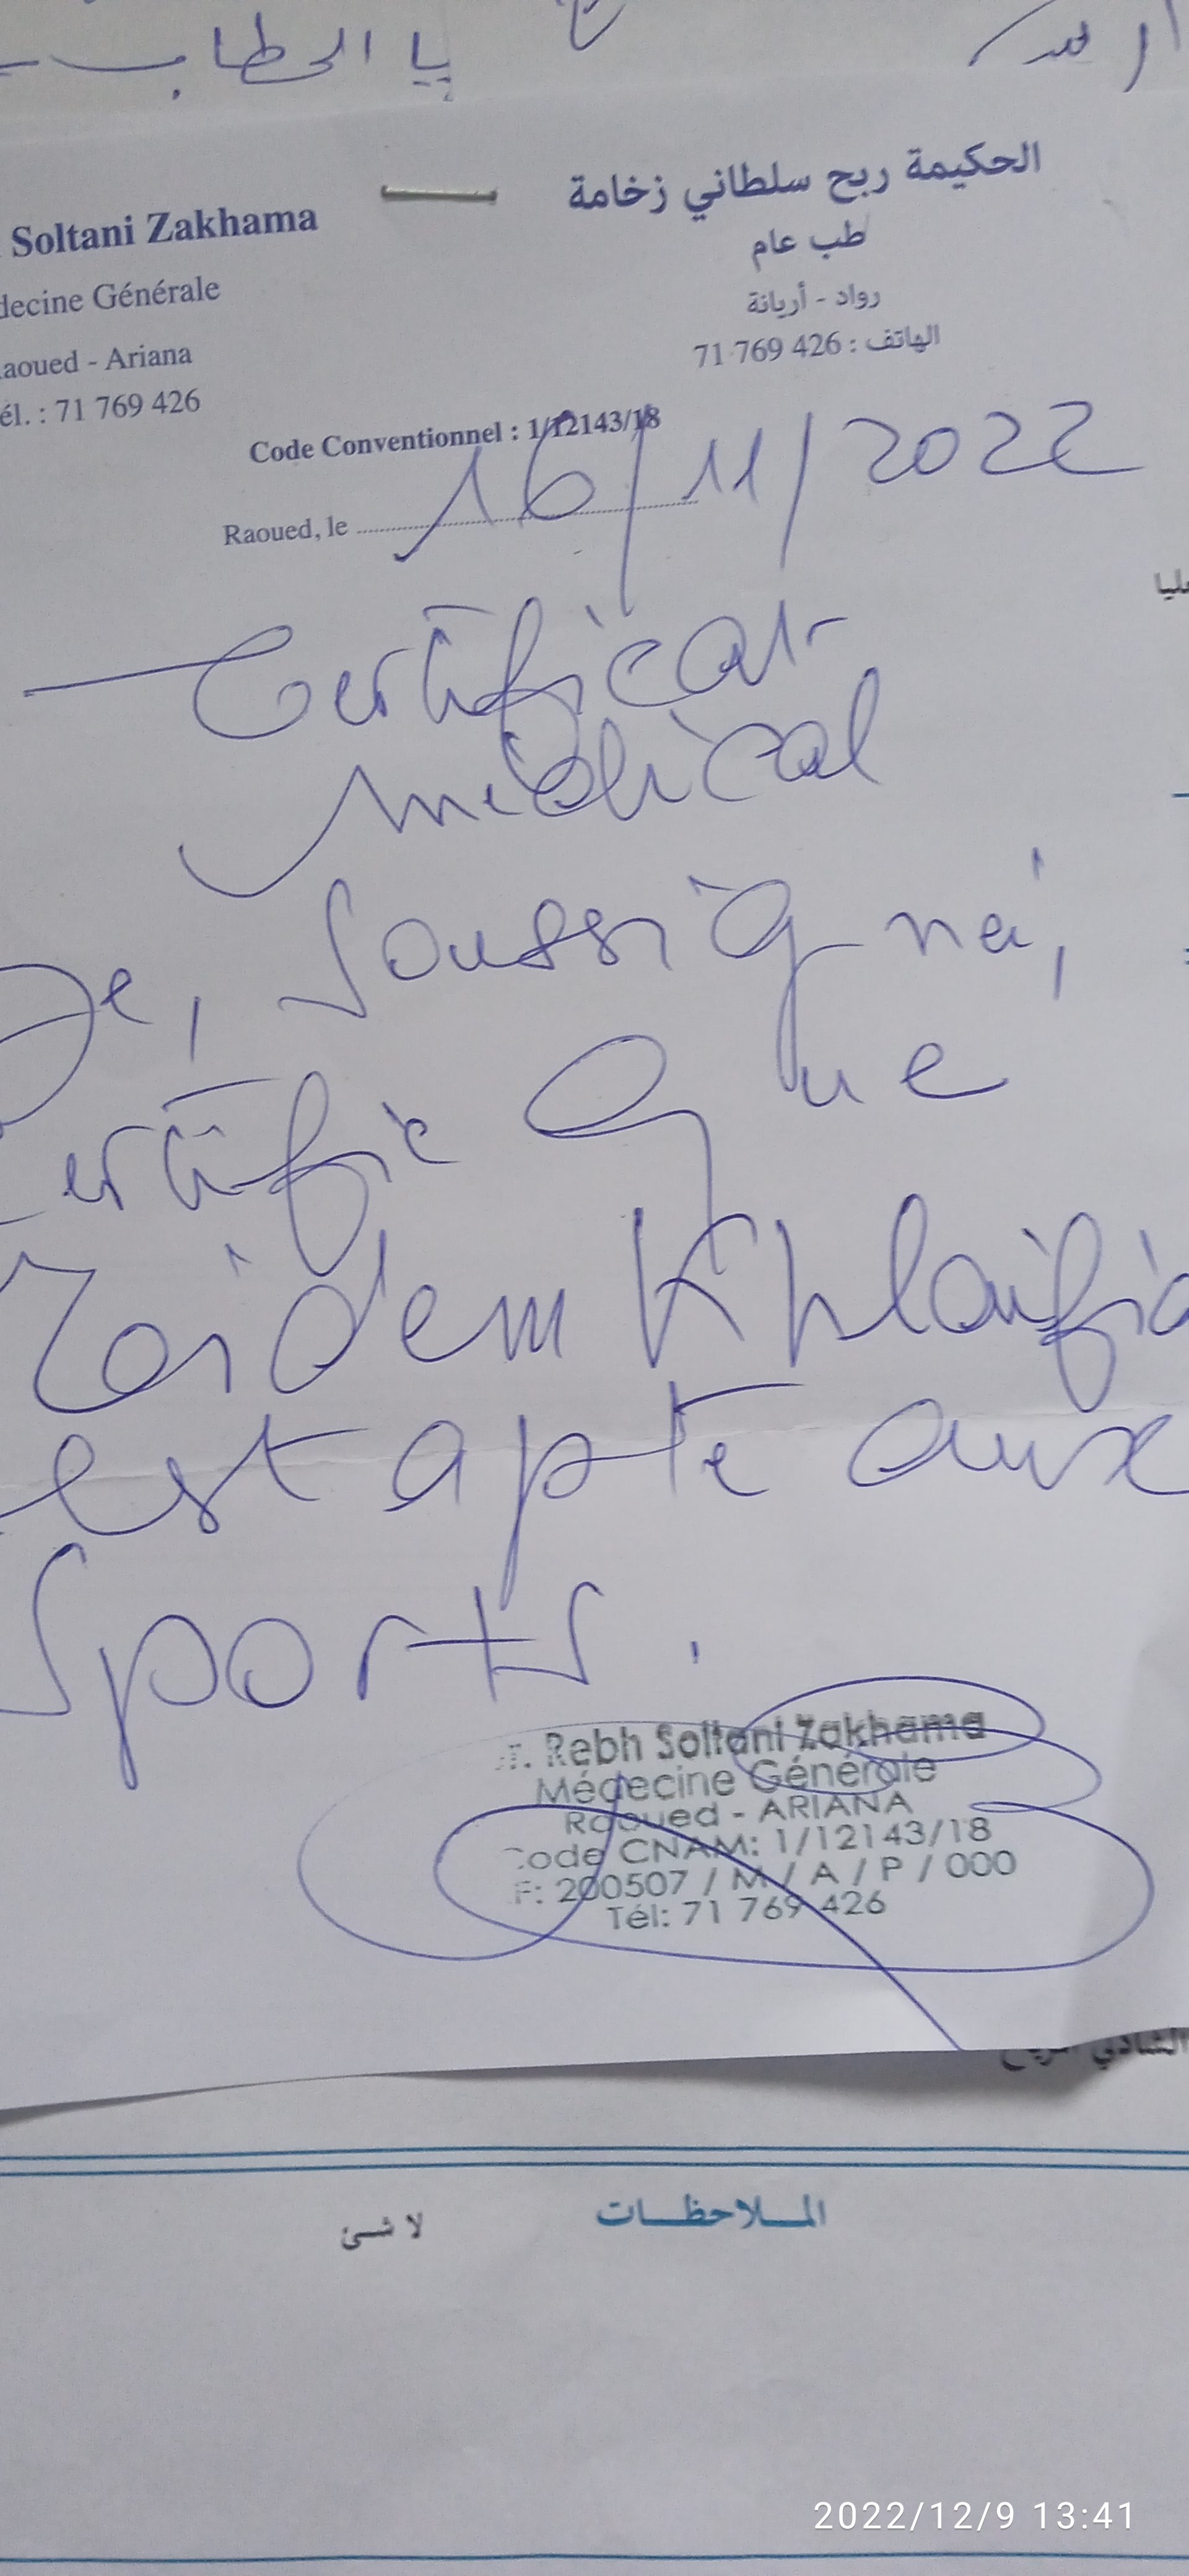 يا الحطاب
Soltani Zakhama
decine Générale
aoued - Ariana
él. : 71 769 426
الحكيمة ربح سلطاني زخامة
طب عام
رواد - أريانة
الهاتف : 426 769 71
Code Conventionnel : 1/12143/18
Raoued, le 16/11/2022
Certificat
médical
Je, soussigné,
certifie que
Khlaifia
est apte aux
sports.
r. Rebh Soltani Zakhama
Médecine Générale
Raoued - ARIANA
Code CNAM: 1/12143/18
F: 200507 / M / A / P / 000
Tél: 71 769 426
الملاحظات
لا شئ
2022/12/9 13:41